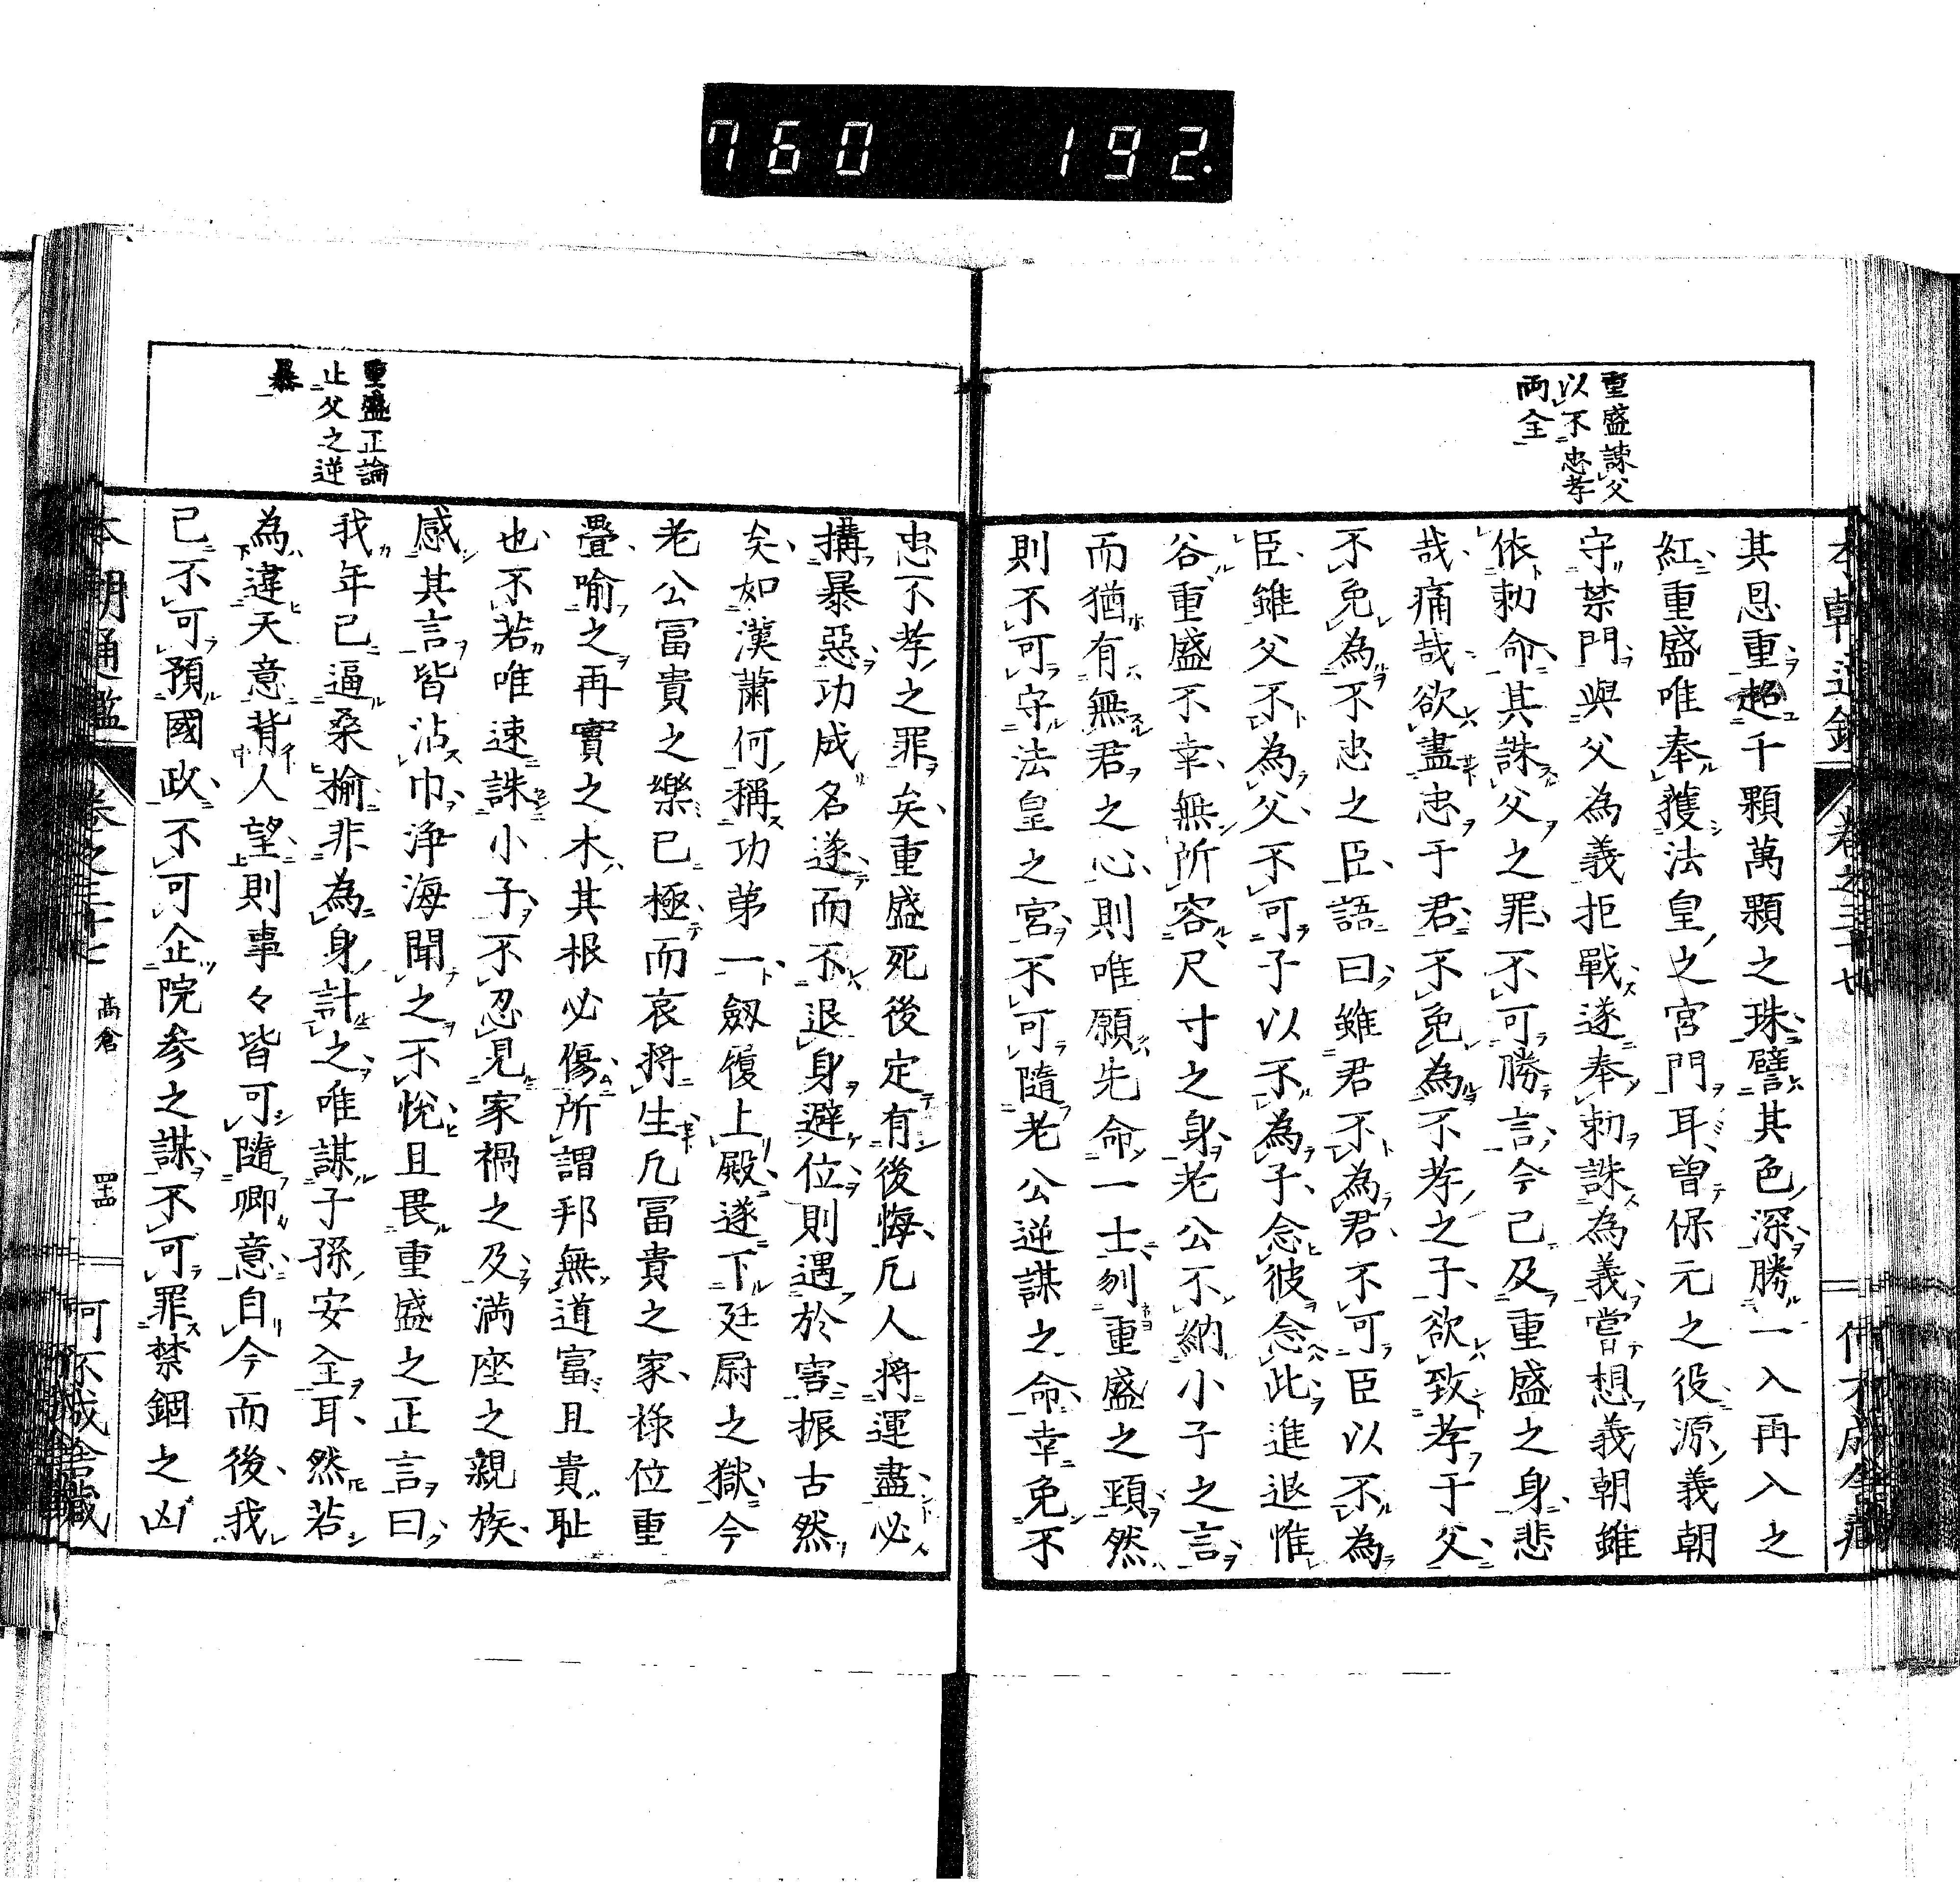 760 192.
重盛諌父
以不忠孝
両全
其恩重超千顆萬顆之珠譬其色深勝一入再入之
紅重盛唯奉獲法皇之宮門耳曽保元之役源義朝
守禁門與父為義拒戰遂奉勅誅為義嘗想義朝雖
依勅命其誅父之罪不可勝言今已及重盛之身悲
哉痛哉欲盡忠于君不免為不孝之子欲致孝于父
不免為不忠之臣語曰雖君不為君不可臣以不為
臣雖父不為父不可子以不為子念彼念此進退惟
谷重盛不幸無所容尺寸之身老公不納小子之言
而猶有無君之心則唯願先命一士刎重盛之頸然
則不可守法皇之宮不可隨老公逆謀之命幸免不
重盛正論
止父之逆
暴
忠不孝之罪矣重盛死後定有後悔凡人將運盡必
搆暴惡功成名遂而不退身避位則遇於害振古然
矣如漢蕭何稱功第一劔履上殿遂下廷尉之獄今
老公冨貴之樂已極而哀將生凡冨貴之家祿位重
疊喻之再實之木其根必傷所謂邦無道富且貴耻
也不若唯速誅小子不忍見家禍之及満座之親族
感其言皆沾巾浄海聞之不悅且畏重盛之正言曰
我年已逼桑榆非為身計之唯謀子孫安全耳然若
為違天意背人望則事々皆可隨卿意自今而後我
已不可預國政不可企院参之謀不可罪禁錮之凶
本朝通鑑 卷之三十七 高倉 四十四